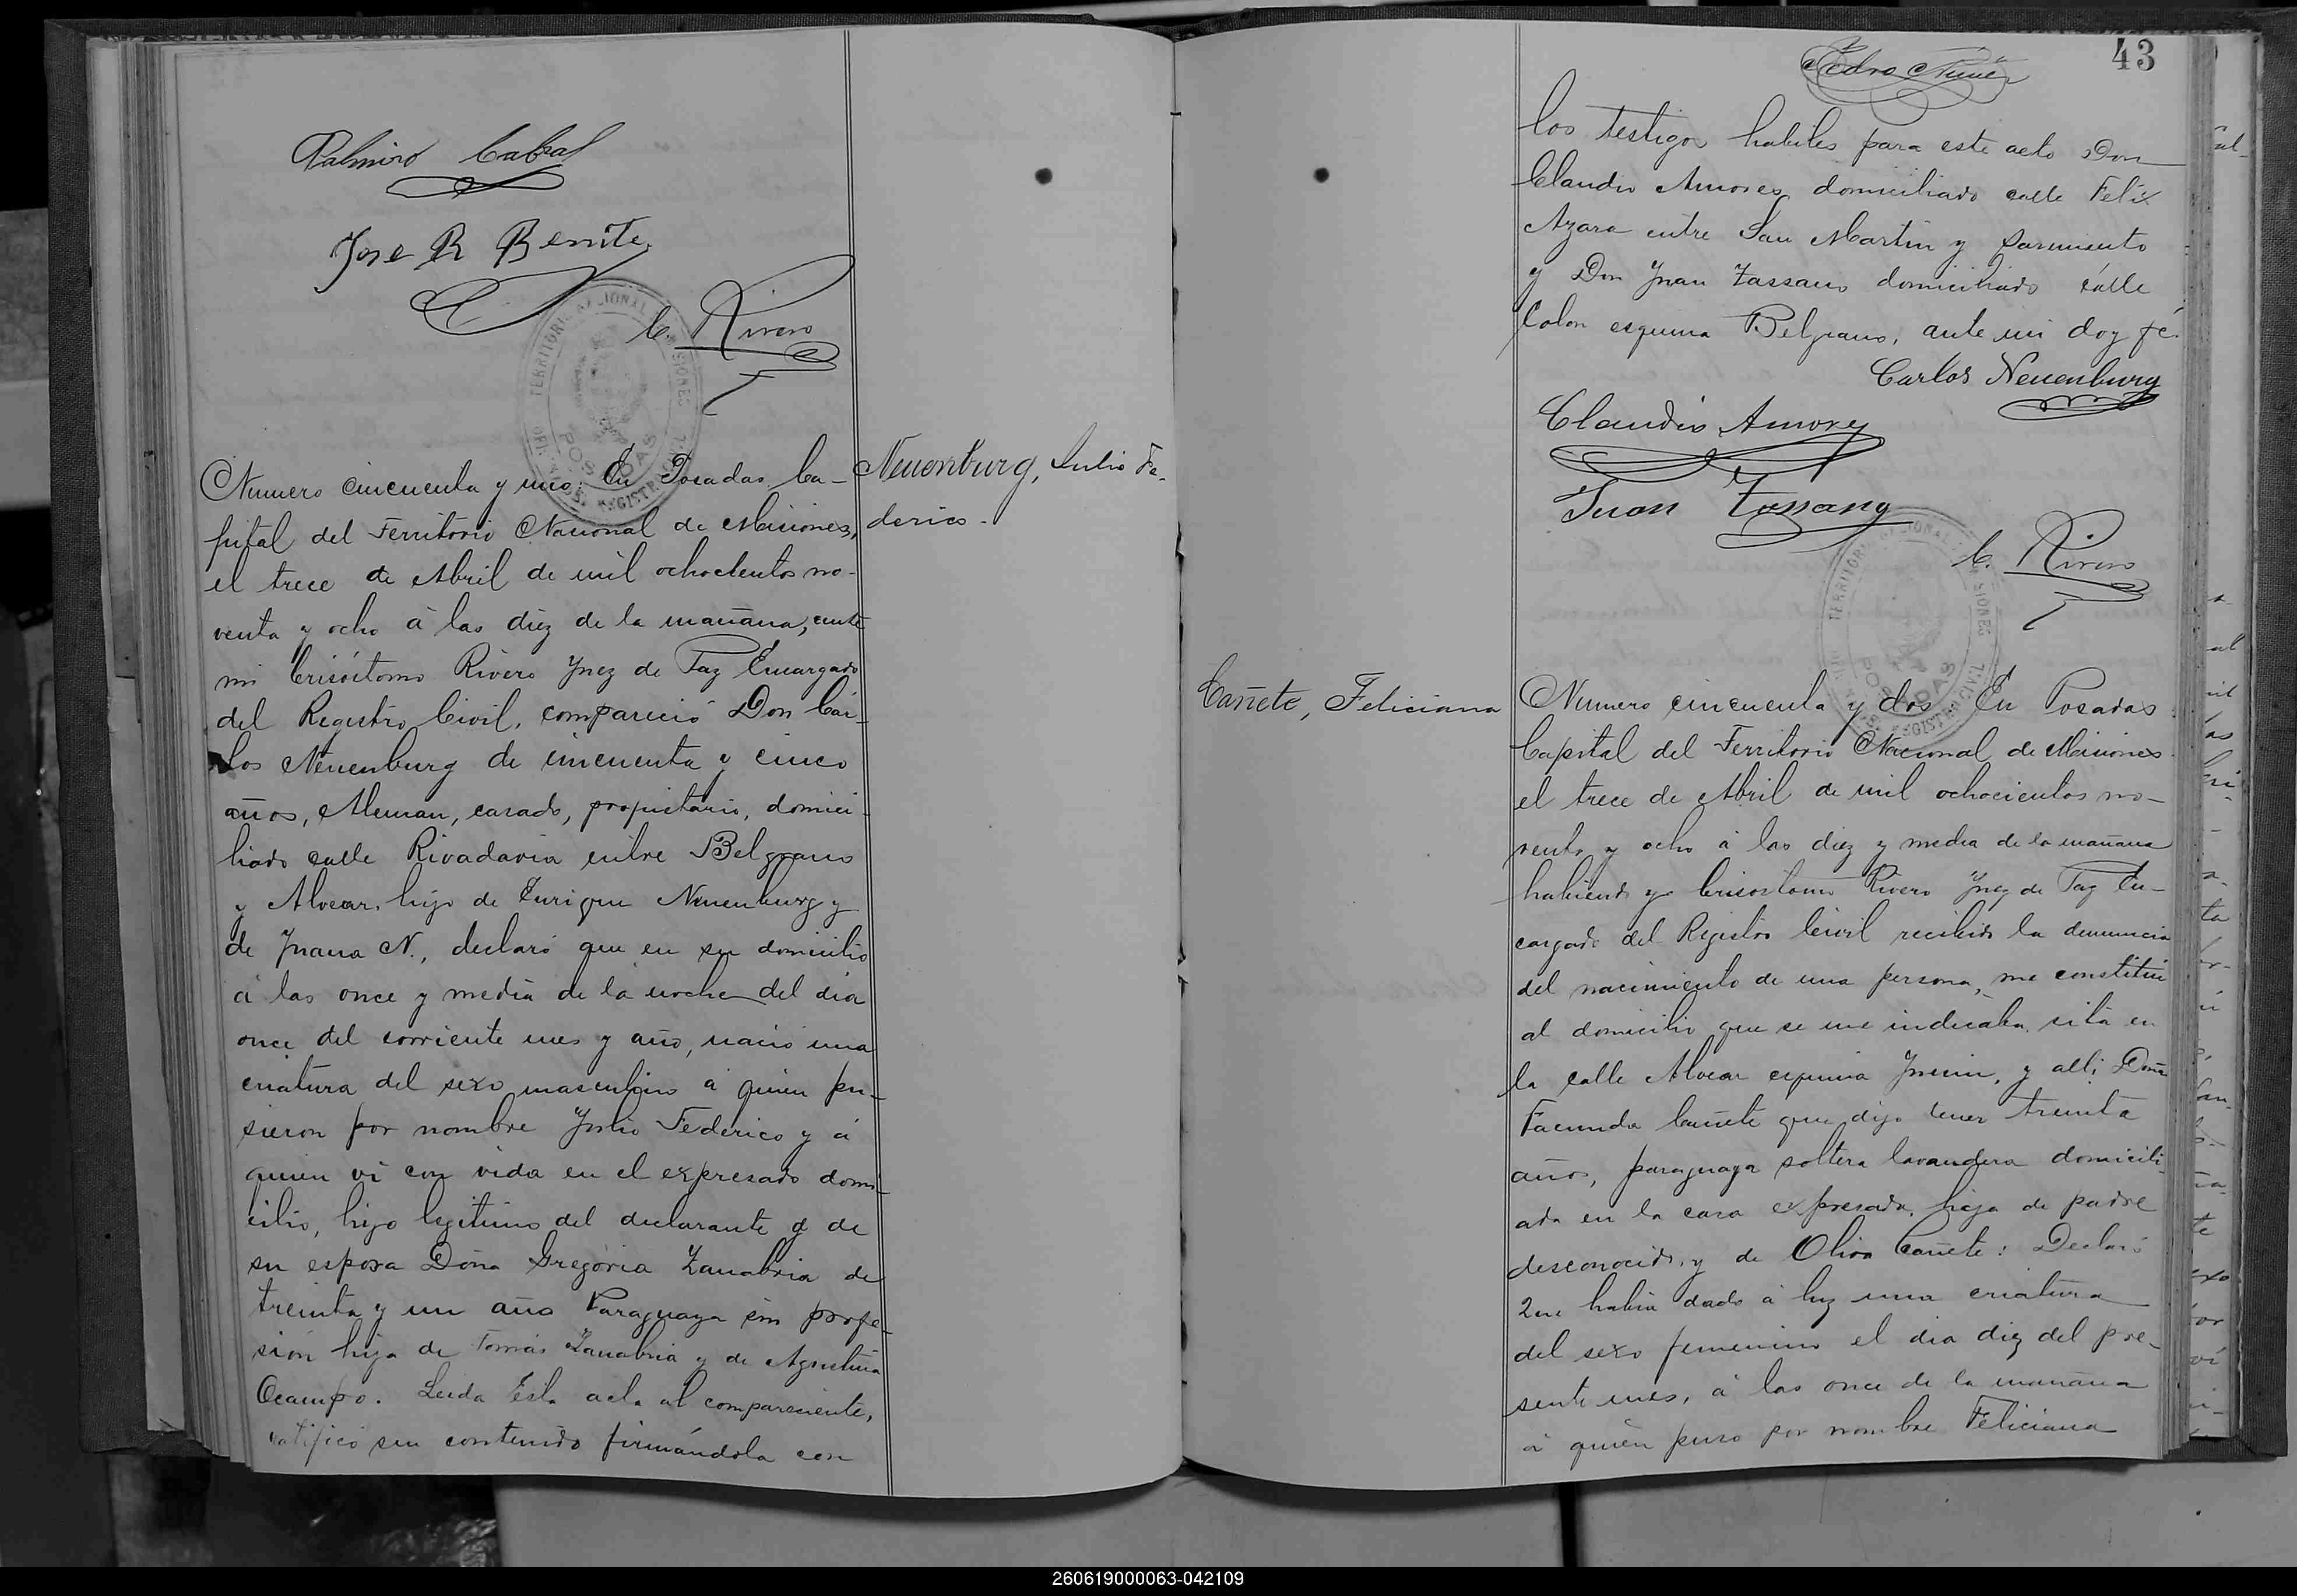 Palmiro Cabral
Jose R Benite
C. Rivero
Numero cincuenta y uno: En Posadas Ca-
pital del Territorio Nacional de Misiones,
el trece de Abril de mil ochocientos no-
venta y ocho á las diez de la mañana, ante
mi Crisóstomo Rivero Juez de Paz Encargado
del Registro Civil, compareció Don Cár-
los Neuenburg de cincuenta y cinco
años, Aleman, casado, propietario, domici-
liado calle Rivadavia entre Belgrano
y Alvear, hijo de Enrique Neuenburg y
de Juana N., declaró que en su domicilio
á las once y media de la noche del dia
once del corriente mes y año, nació una
criatura del sexo masculino á quien pu-
sieron por nombre Julio Federico y á
quien vi con vida en el expresado domi-
cilio, hijo legitimo del declarante y de
su esposa Doña Gregoria Zanabria de
treinta y un año Paraguaya sin profe-
sión hija de Tomás Zanabria y de Agustina
Ocampo. Leida esta acta al compareciente,
ratificó su contenido firmándola con
Neuenburg, Julio Fe-
derico.
43
Pedro Nuñez
los testigos habiles para este acto Don
Claudio Amores domiciliado calle Felix
Azara entre San Martin y Sarmiento
y Don Juan Tassano domiciliado calle
Colon esquina Belgrano, ante mi doy fé.
Carlos Neuenburg
Claudio Amores
Juan Tassano
C. Rivero
Cañete, Feliciana
Numero cincuenta y dos En Posadas
Capital del Territorio Nacional de Misiones
el trece de Abril de mil ochocientos no-
venta y ocho á las diez y media de la mañana
habiendo yo Crisostomo Rivero Juez de Paz En-
cargado del Registro Civil recibido la denuncia
del nacimiento de una persona, me constitui
al domicilio que se me indicaba, sita en
la calle Alvear esquina Junin, y alli Doña
Facunda Cañete que dijo tener treinta
años, paraguaya soltera lavandera domicili-
ada en la casa expresada, hija de padre
desconocido, y de Oliva Cañete: Declaró
Que habia dado á luz una criatura
del sexo femenino el dia diez del pre-
sente mes, á las once de la mañana
á quien puso por nombre Feliciana
TERRITORIO NACIONAL MISIONES
POSADAS
REGISTRO CIVIL
TERRITORIO NACIONAL MISIONES
POSADAS
REGISTRO CIVIL
260619000063-042109